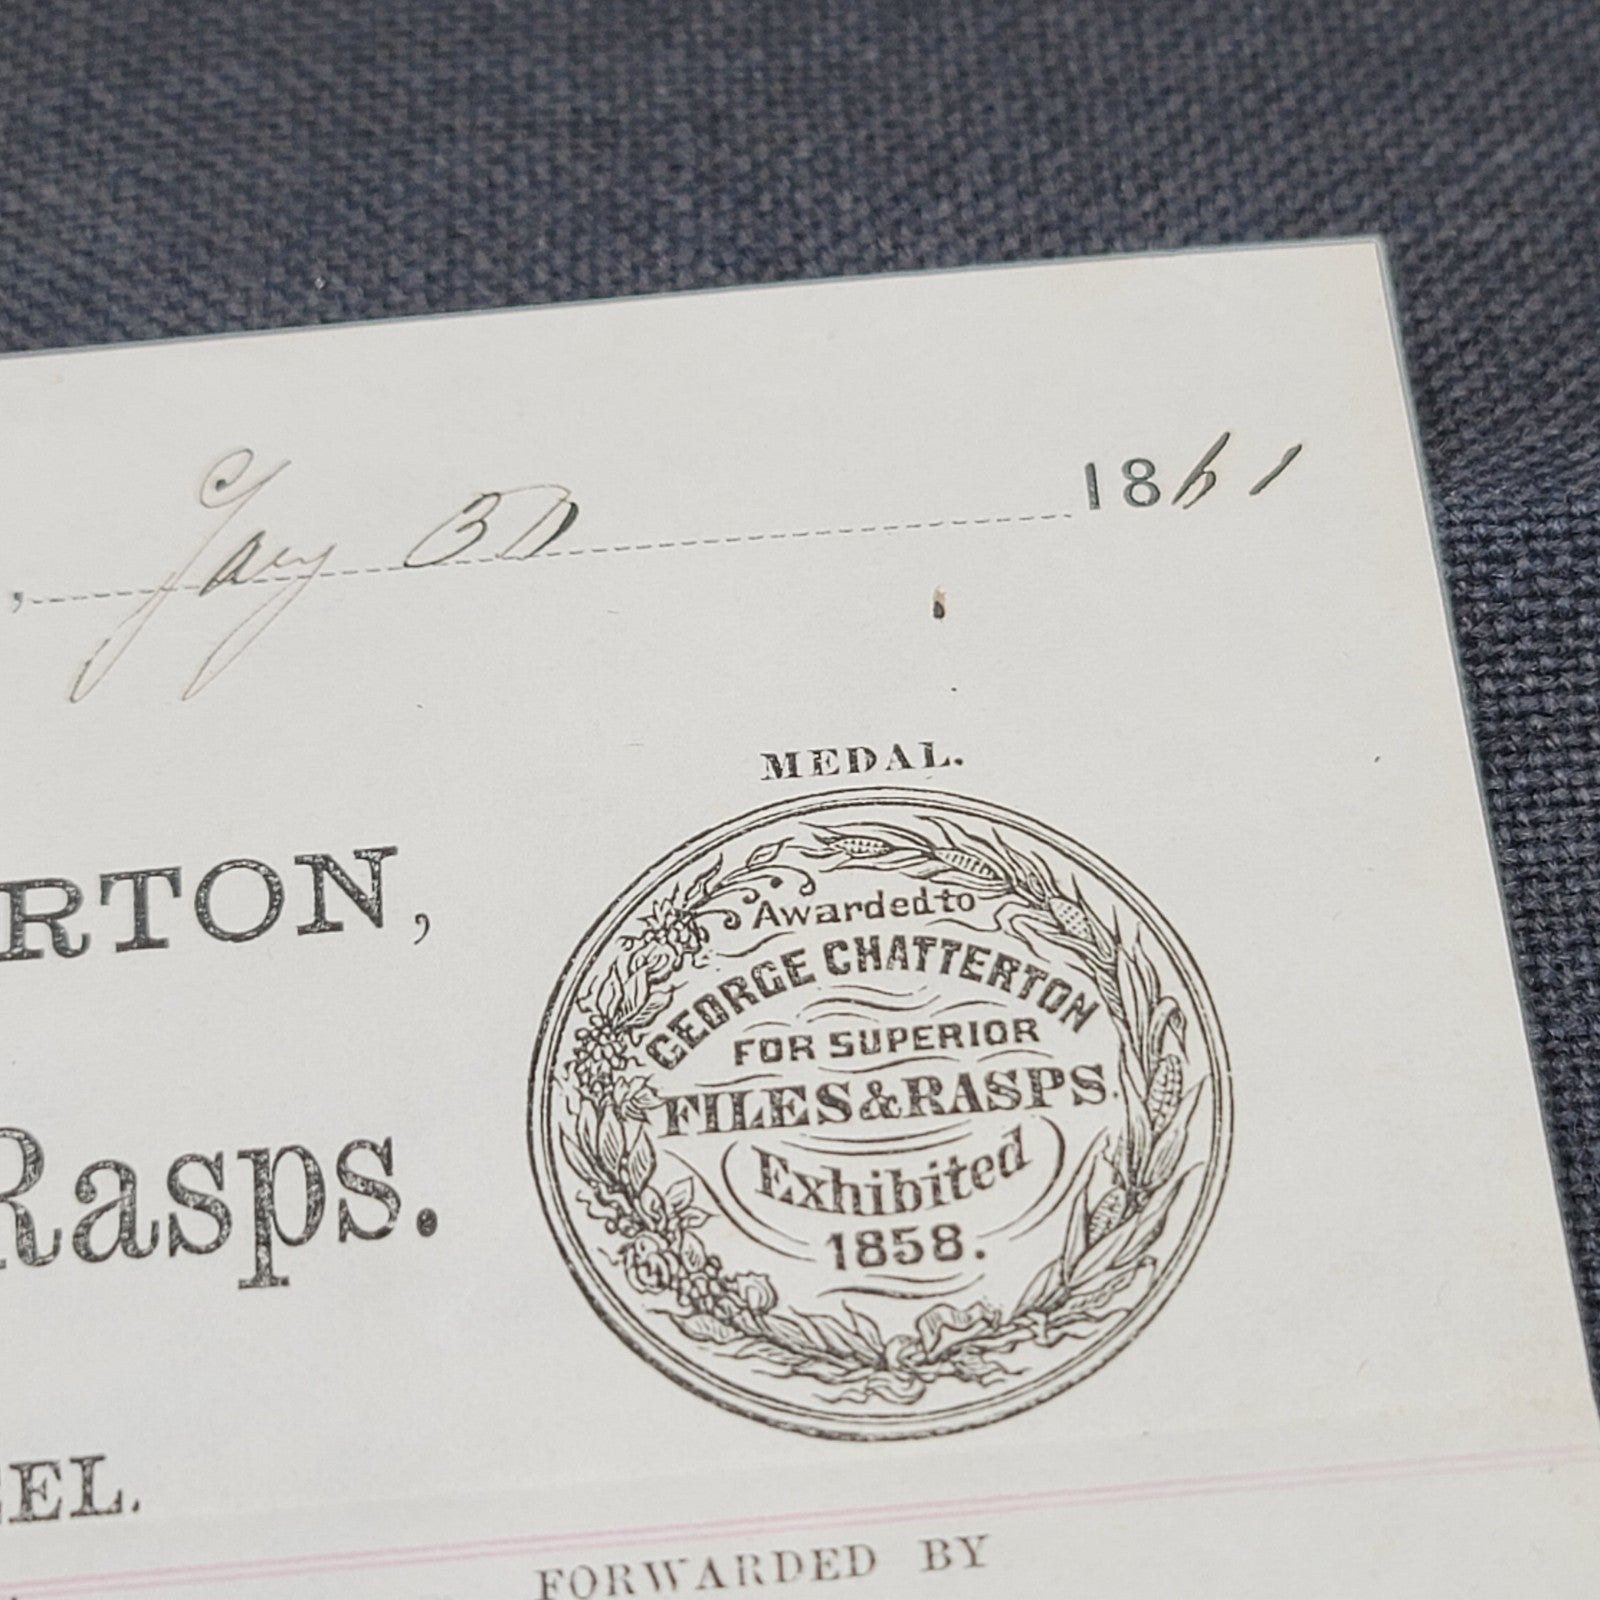 , Jany 30 1861
MEDAL.
RTON,
Awarded to
GEORGE CHATTERTON
FOR SUPERIOR
FILES & RASPS.
Exhibited
1858.
Rasps.
EEL.
FORWARDED BY